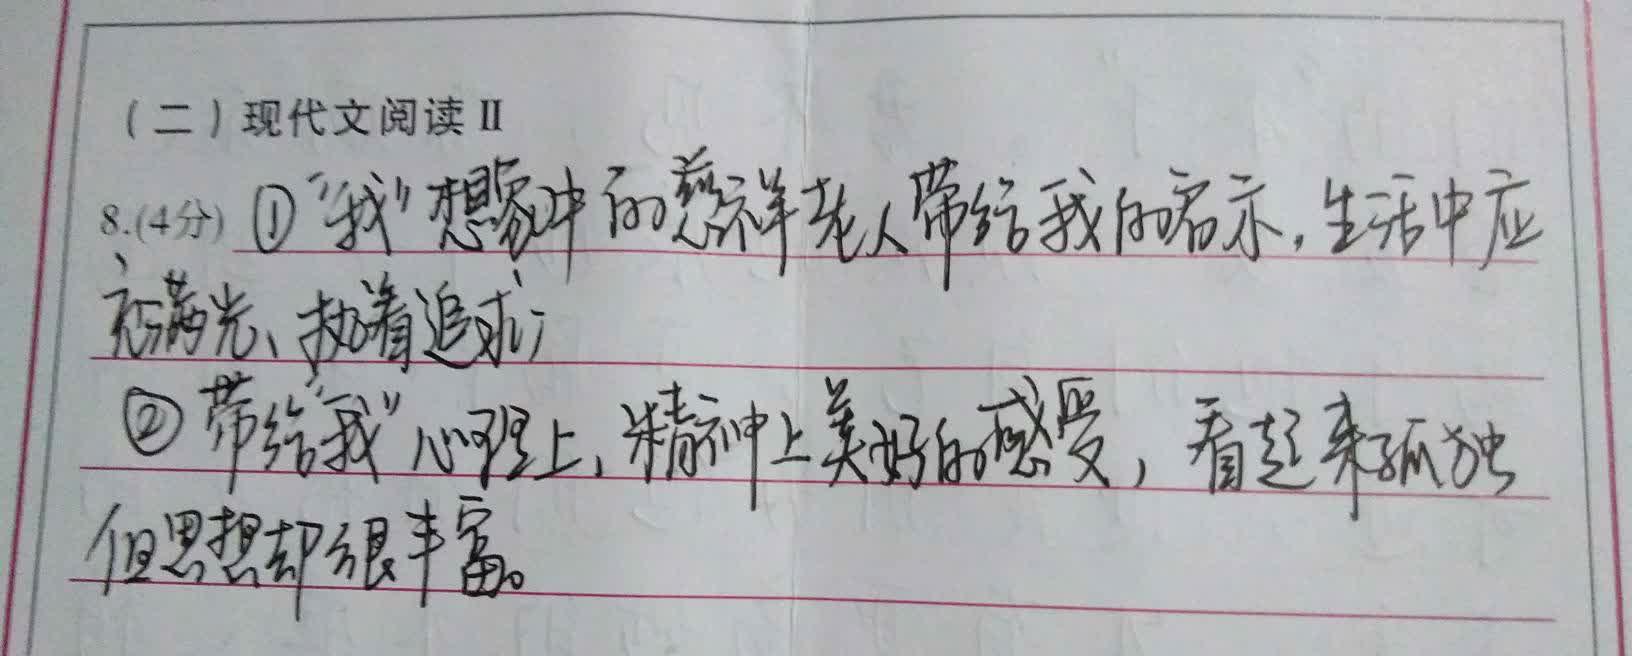 （二）现代文阅读Ⅱ
8.(4分) ①“我”想象中的慈祥老人带给我的启示，生活中应
充满光、执着追求；
②带给“我”心理上，精神上美好的感受，看起来孤独
但思想却很丰富。